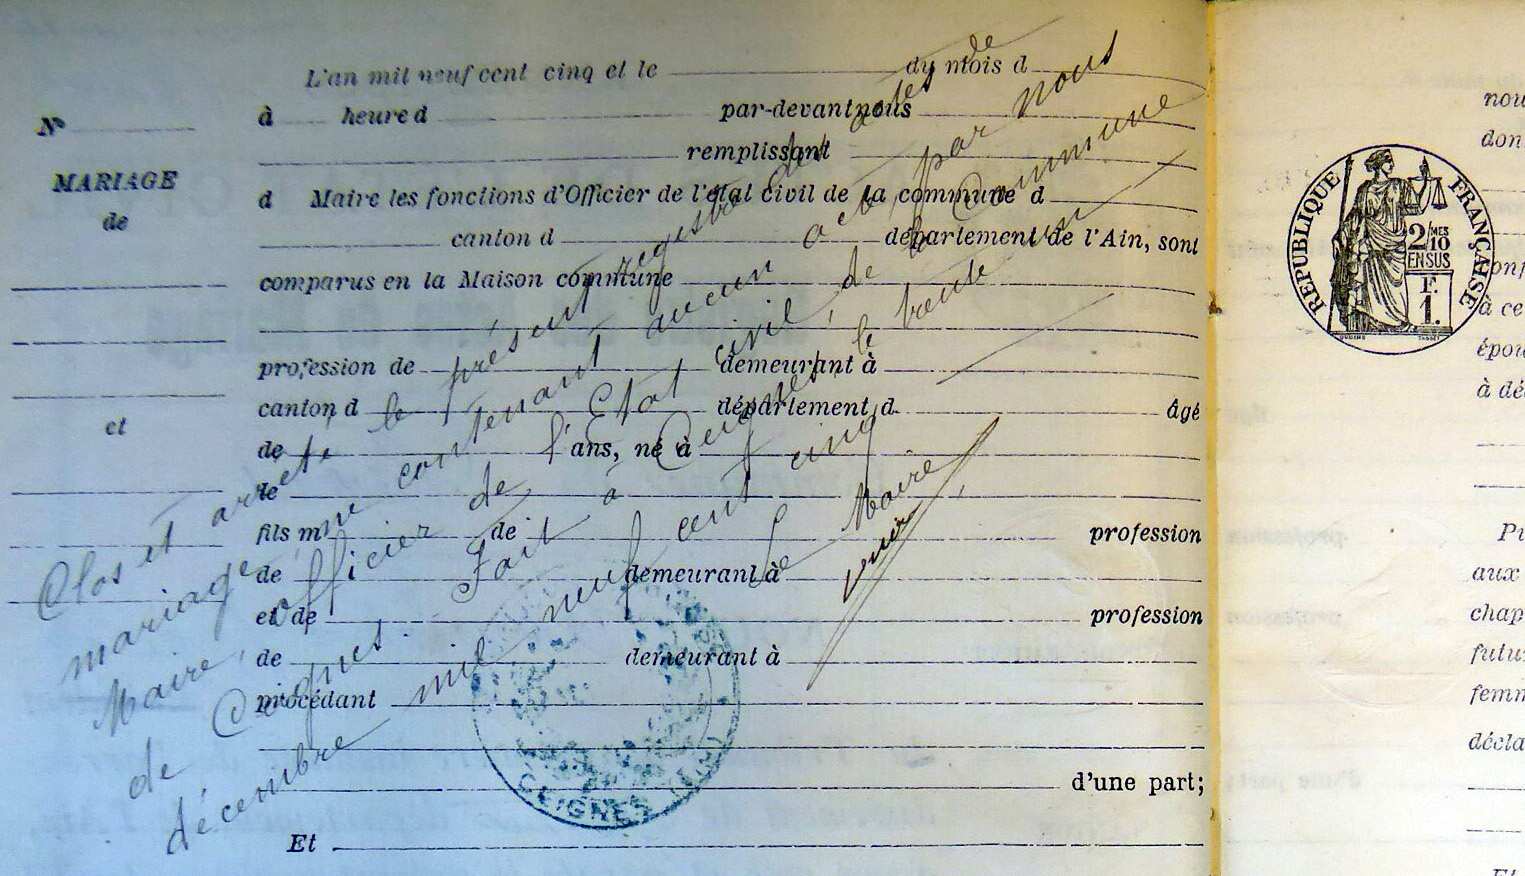 L'an mil neuf cent cinq et le du mois d
Nº
à heure d par-devant nous
remplissant
MARIAGE
d Maire les fonctions d'Officier de l'état civil de la commune d
de
canton d département de l'Ain, sont
comparus en la Maison commune
profession de demeurant à
canton d département d âgé
et
de ans, né à
le
fils m de profession
de demeurant à
et de profession
de demeurant à
procédant
d'une part;
Et
Clos et arrêté le présent registre des actes de
mariage, ne contenant aucun acte par nous
Maire, officier de l'Etat civil, de la Commune
de Ceignes. Fait à Ceignes, le trente un
décembre mil neuf cent cinq
Le Maire
CEIGNES (AIN)
RÉPUBLIQUE FRANÇAISE
2/MES
10
EN SUS
F.
1.
nou
don
conf
à ce
épou
à dé
Pu
aux
chap
futu
femm
décla
Et